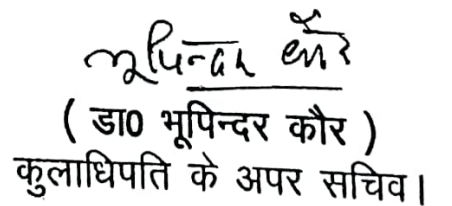 भूपिन्दर कौर
( डा0 भूपिन्दर कौर )
कुलाधिपति के अपर सचिव।